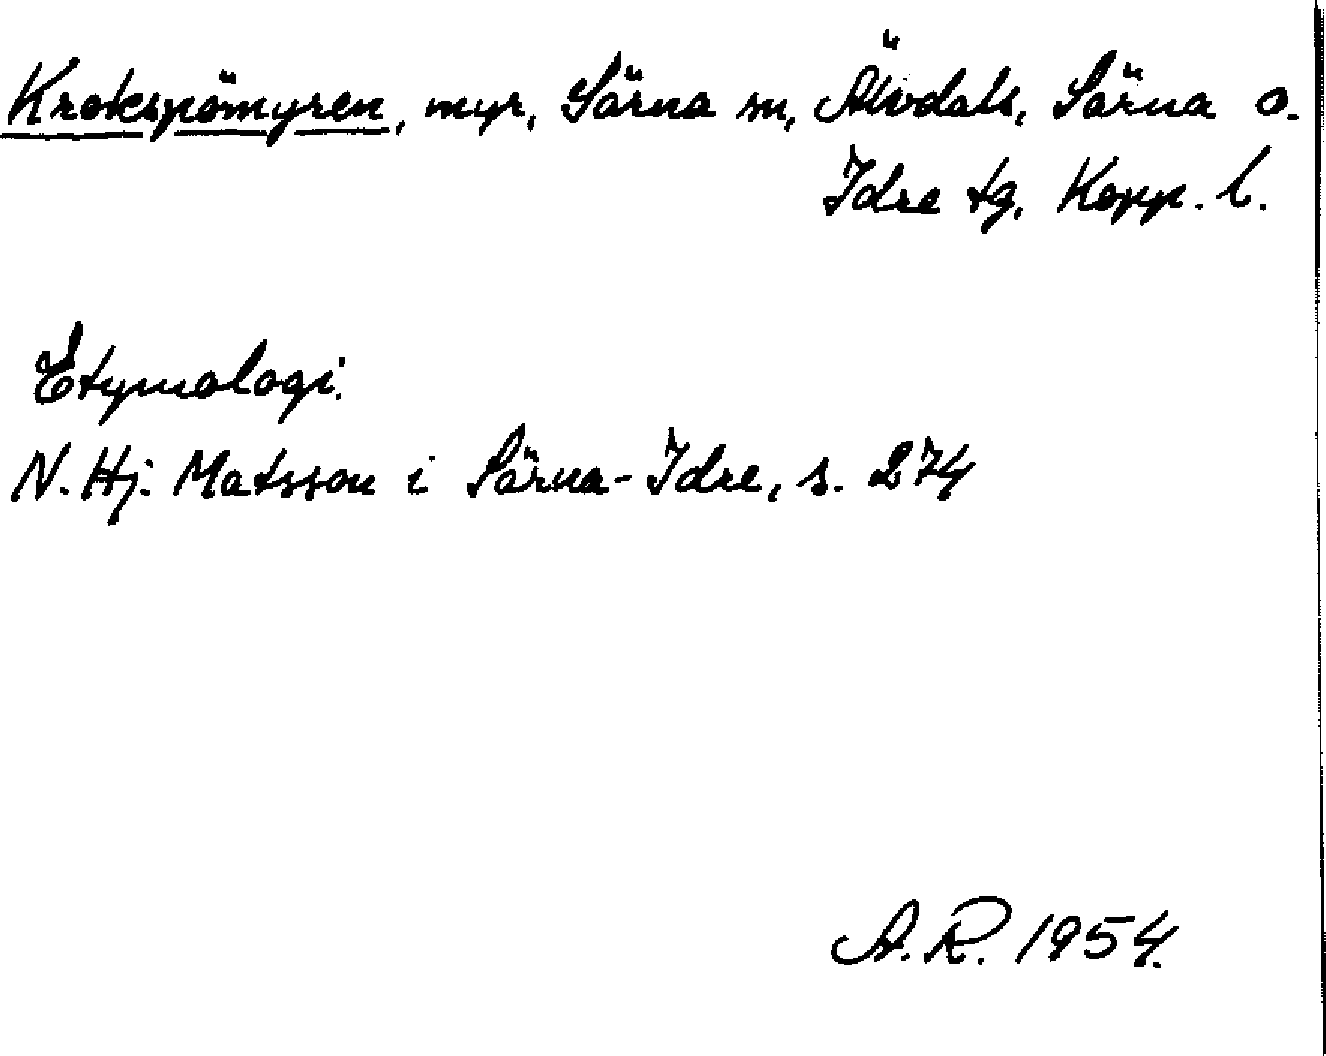 Krokspömyren, myr, Särna sn, Älvdals, Särna o.
Idre tg, Kopp. l.
Etymologi.
N. Hj. Matsson i Särna-Idre, s. 274
A.R. 1954.